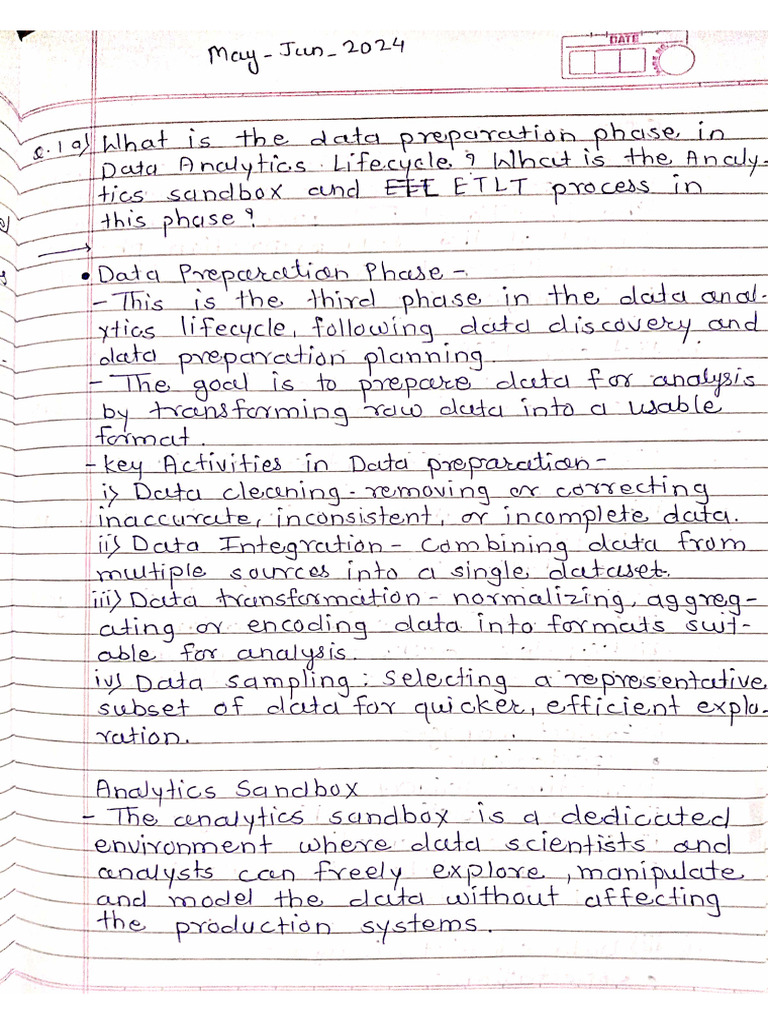 May-Jun-2024
DATE
Q.1 a) What is the data preparation phase in
Data Analytics Lifecycle? What is the Analy-
tics sandbox and ETLT process in
this phase?
• Data Preparation Phase -
- This is the third phase in the data anal-
ytics lifecycle, following data discovery and
data preparation planning.
- The goal is to prepare data for analysis
by transforming raw data into a usable
format.
- Key Activities in Data preparation -
i) Data cleaning - removing or correcting
inaccurate, inconsistent, or incomplete data.
ii) Data Integration - Combining data from
multiple sources into a single dataset.
iii) Data transformation - normalizing, aggreg-
ating or encoding data into formats suit-
able for analysis.
iv) Data sampling: Selecting a representative
subset of data for quicker, efficient explo-
ration.
Analytics Sandbox
- The analytics sandbox is a dedicated
environment where data scientists and
analysts can freely explore, manipulate
and model the data without affecting
the production systems.